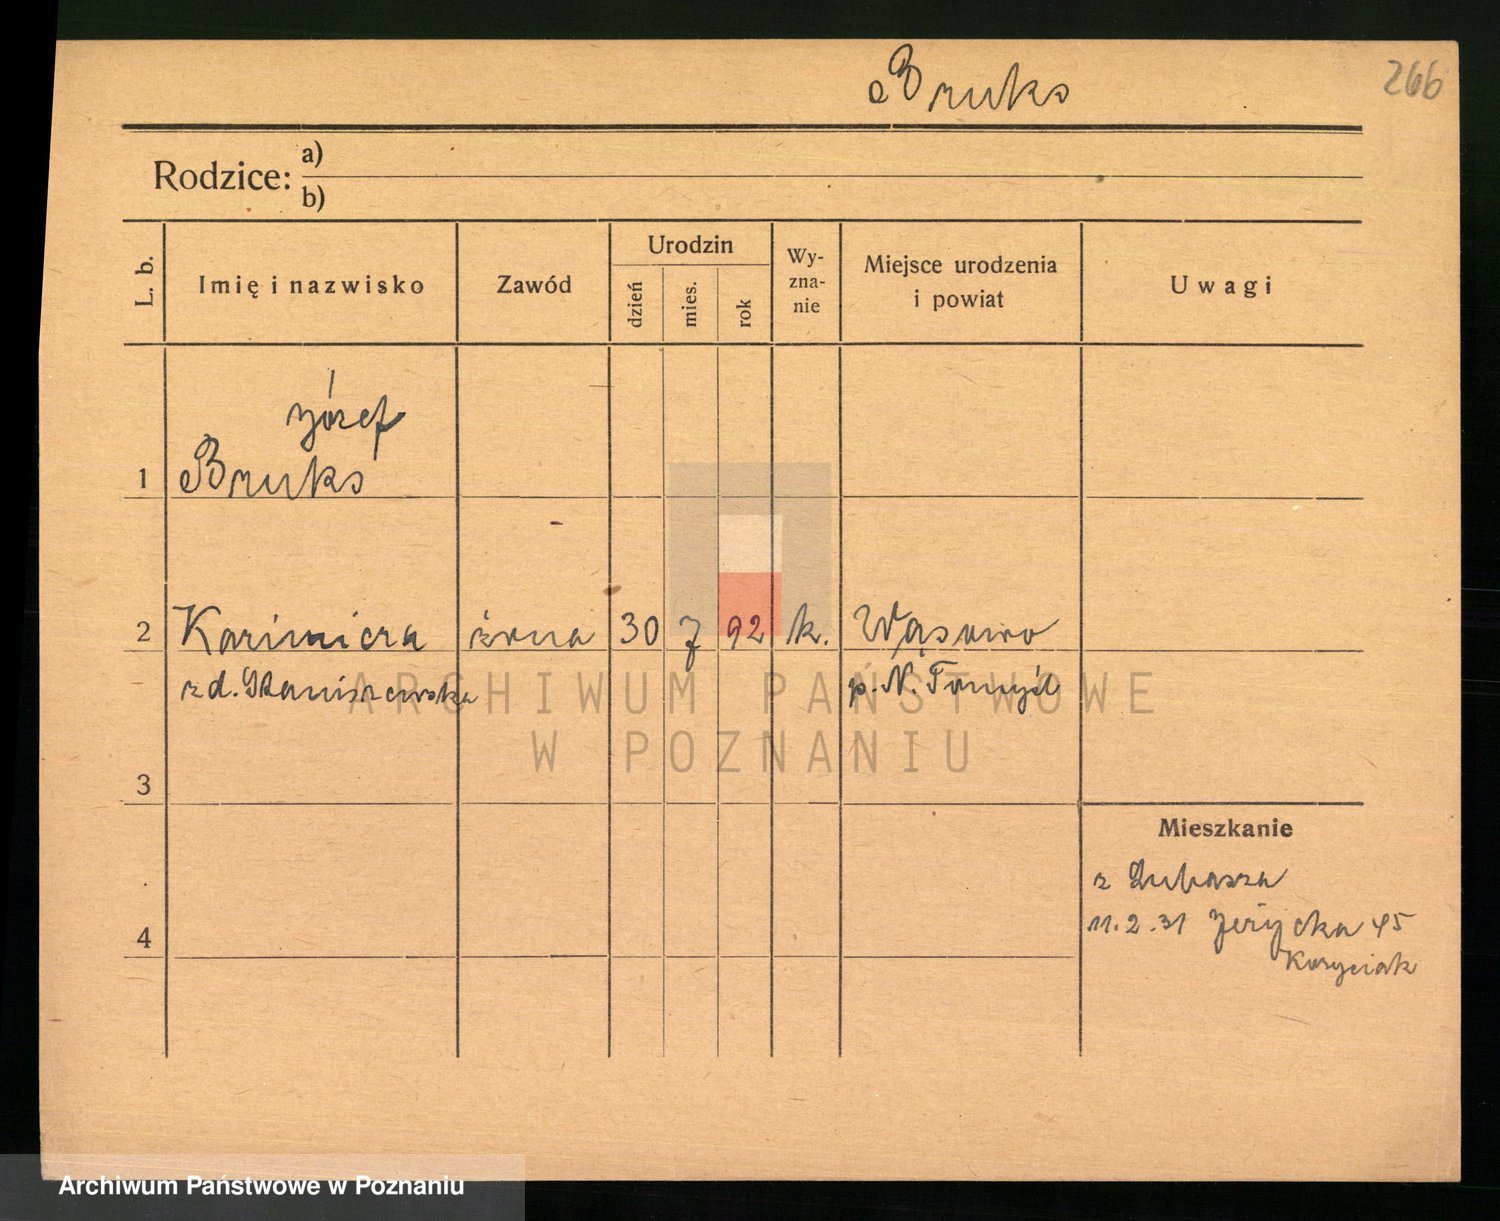 Bruks
266
Rodzice:
a)
b)
L. b.
Imię i nazwisko
Zawód
Urodzin
dzień
mies.
rok
Wy-
zna-
nie
Miejsce urodzenia
i powiat
Uwagi
Józef
1 Bruks
2 Kazimiera żona 30 7 92 k. Wąsowo
z d. Staniszewska p. N. Tomyśl
3
4
Mieszkanie
z Lubasza
11.2.31 Jeżycka 45
ARCHIWUM PAŃSTWOWE
W POZNANIU
Archiwum Państwowe w Poznaniu